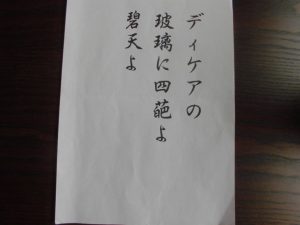 ディケアの
玻璃に四葩よ
碧天よ